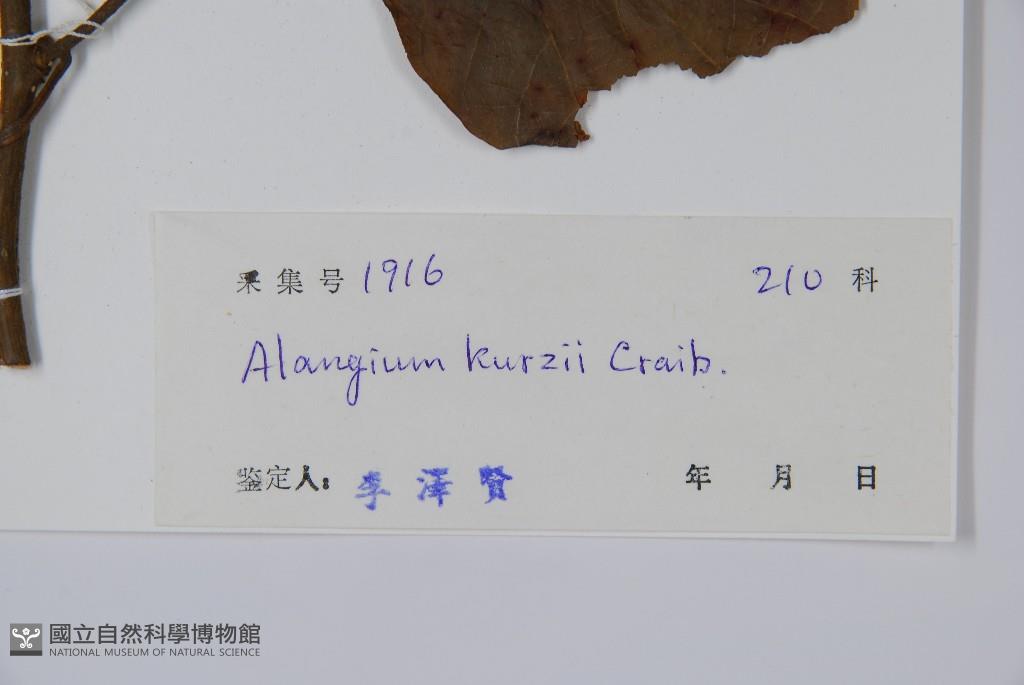 采集号 1916 210 科
Alangium kurzii Craib.
鉴定人: 李泽贤 年 月 日
國立自然科學博物館
NATIONAL MUSEUM OF NATURAL SCIENCE